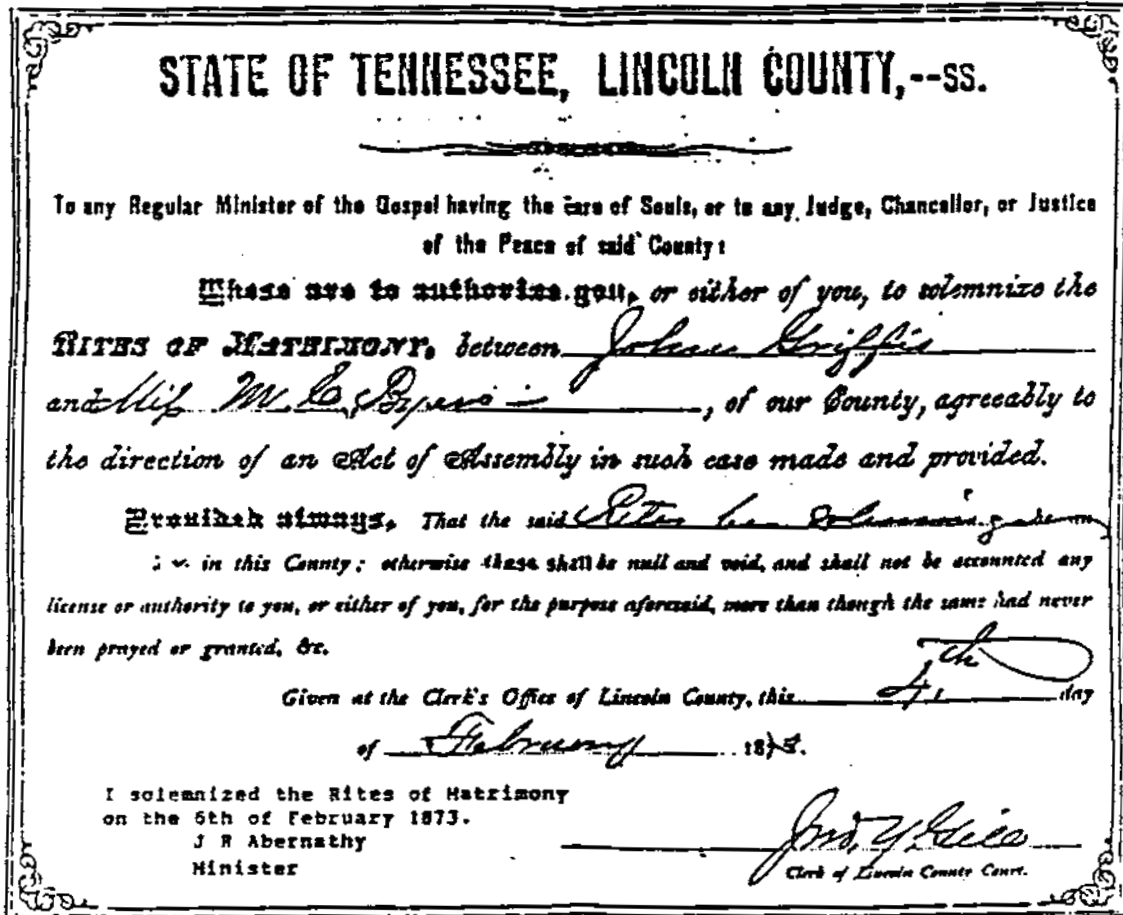 STATE OF TENNESSEE, LINCOLN COUNTY,--ss.
To any Regular Minister of the Gospel having the care of Souls, or to any Judge, Chancellor, or Justice
of the Peace of said County:
These are to authorize you, or either of you, to solemnize the
RITES OF MATRIMONY, between John Griffis
and Miss M. E. Byers, of our County, agreeably to
the direction of an Act of Assembly in such case made and provided.
Provided always, That the said Rites be
in this County; otherwise these shall be null and void, and shall not be accounted any
license or authority to you, or either of you, for the purpose aforesaid, more than though the same had never
been prayed or granted, &c.
Given at the Clerk's Office of Lincoln County, this 4th day
of February 187
I solemnized the Rites of Matrimony
on the 6th of February 1873.
J R Abernathy
Minister
Jno. Y. Gill
Clerk of Lincoln County Court.